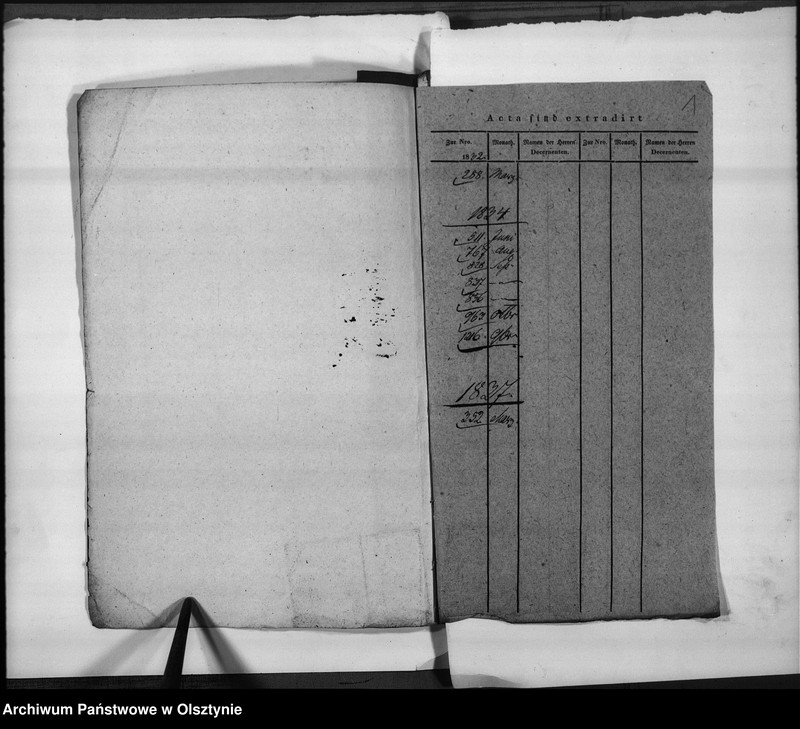 1
Acta sind extradirt
Zur Nro. Monath. Namen der Herren Decernenten. Zur Nro. Monath. Namen der Herren Decernenten.
1832.
288. Marz
1834
311. Juni
767 Aug
828 Sept
837 —
856 —
963 Octbr
1216. 9br
1837.
352 Marz
Archiwum Państwowe w Olsztynie